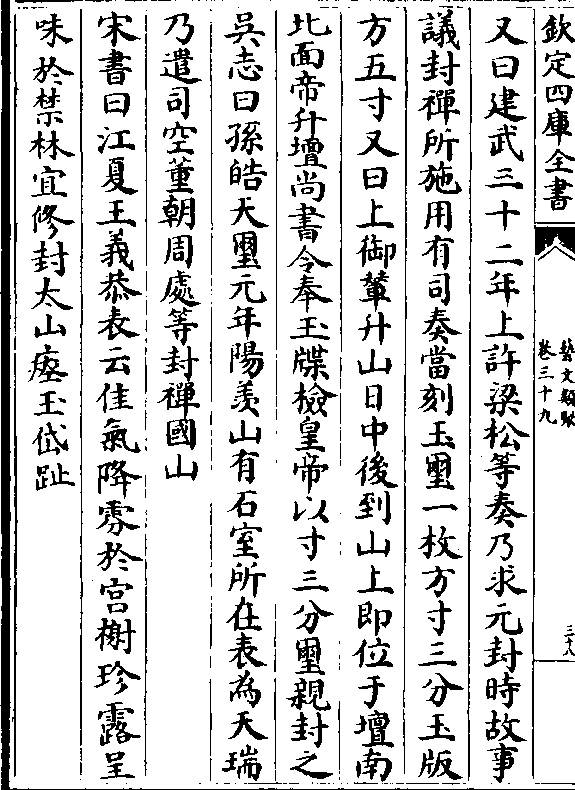 欽定四庫全書
藝文類聚
卷三十九
三十八
又曰建武三十二年上許梁松等奏乃求元封時故事
議封禪所施用有司奏當刻玉璽一枚方寸三分玉版
方五寸又曰上御輦升山日中後到山上即位于壇南
北面帝升壇尚書令奉玉牒檢皇帝以寸三分璽親封之
吳志曰孫皓天璽元年陽羨山有石室所在表為天瑞
乃遣司空董朝周處等封禪國山
宋書曰江夏王義恭表云佳氣降雰於宮榭珍露呈
味於禁林宜修封太山瘞玉岱趾